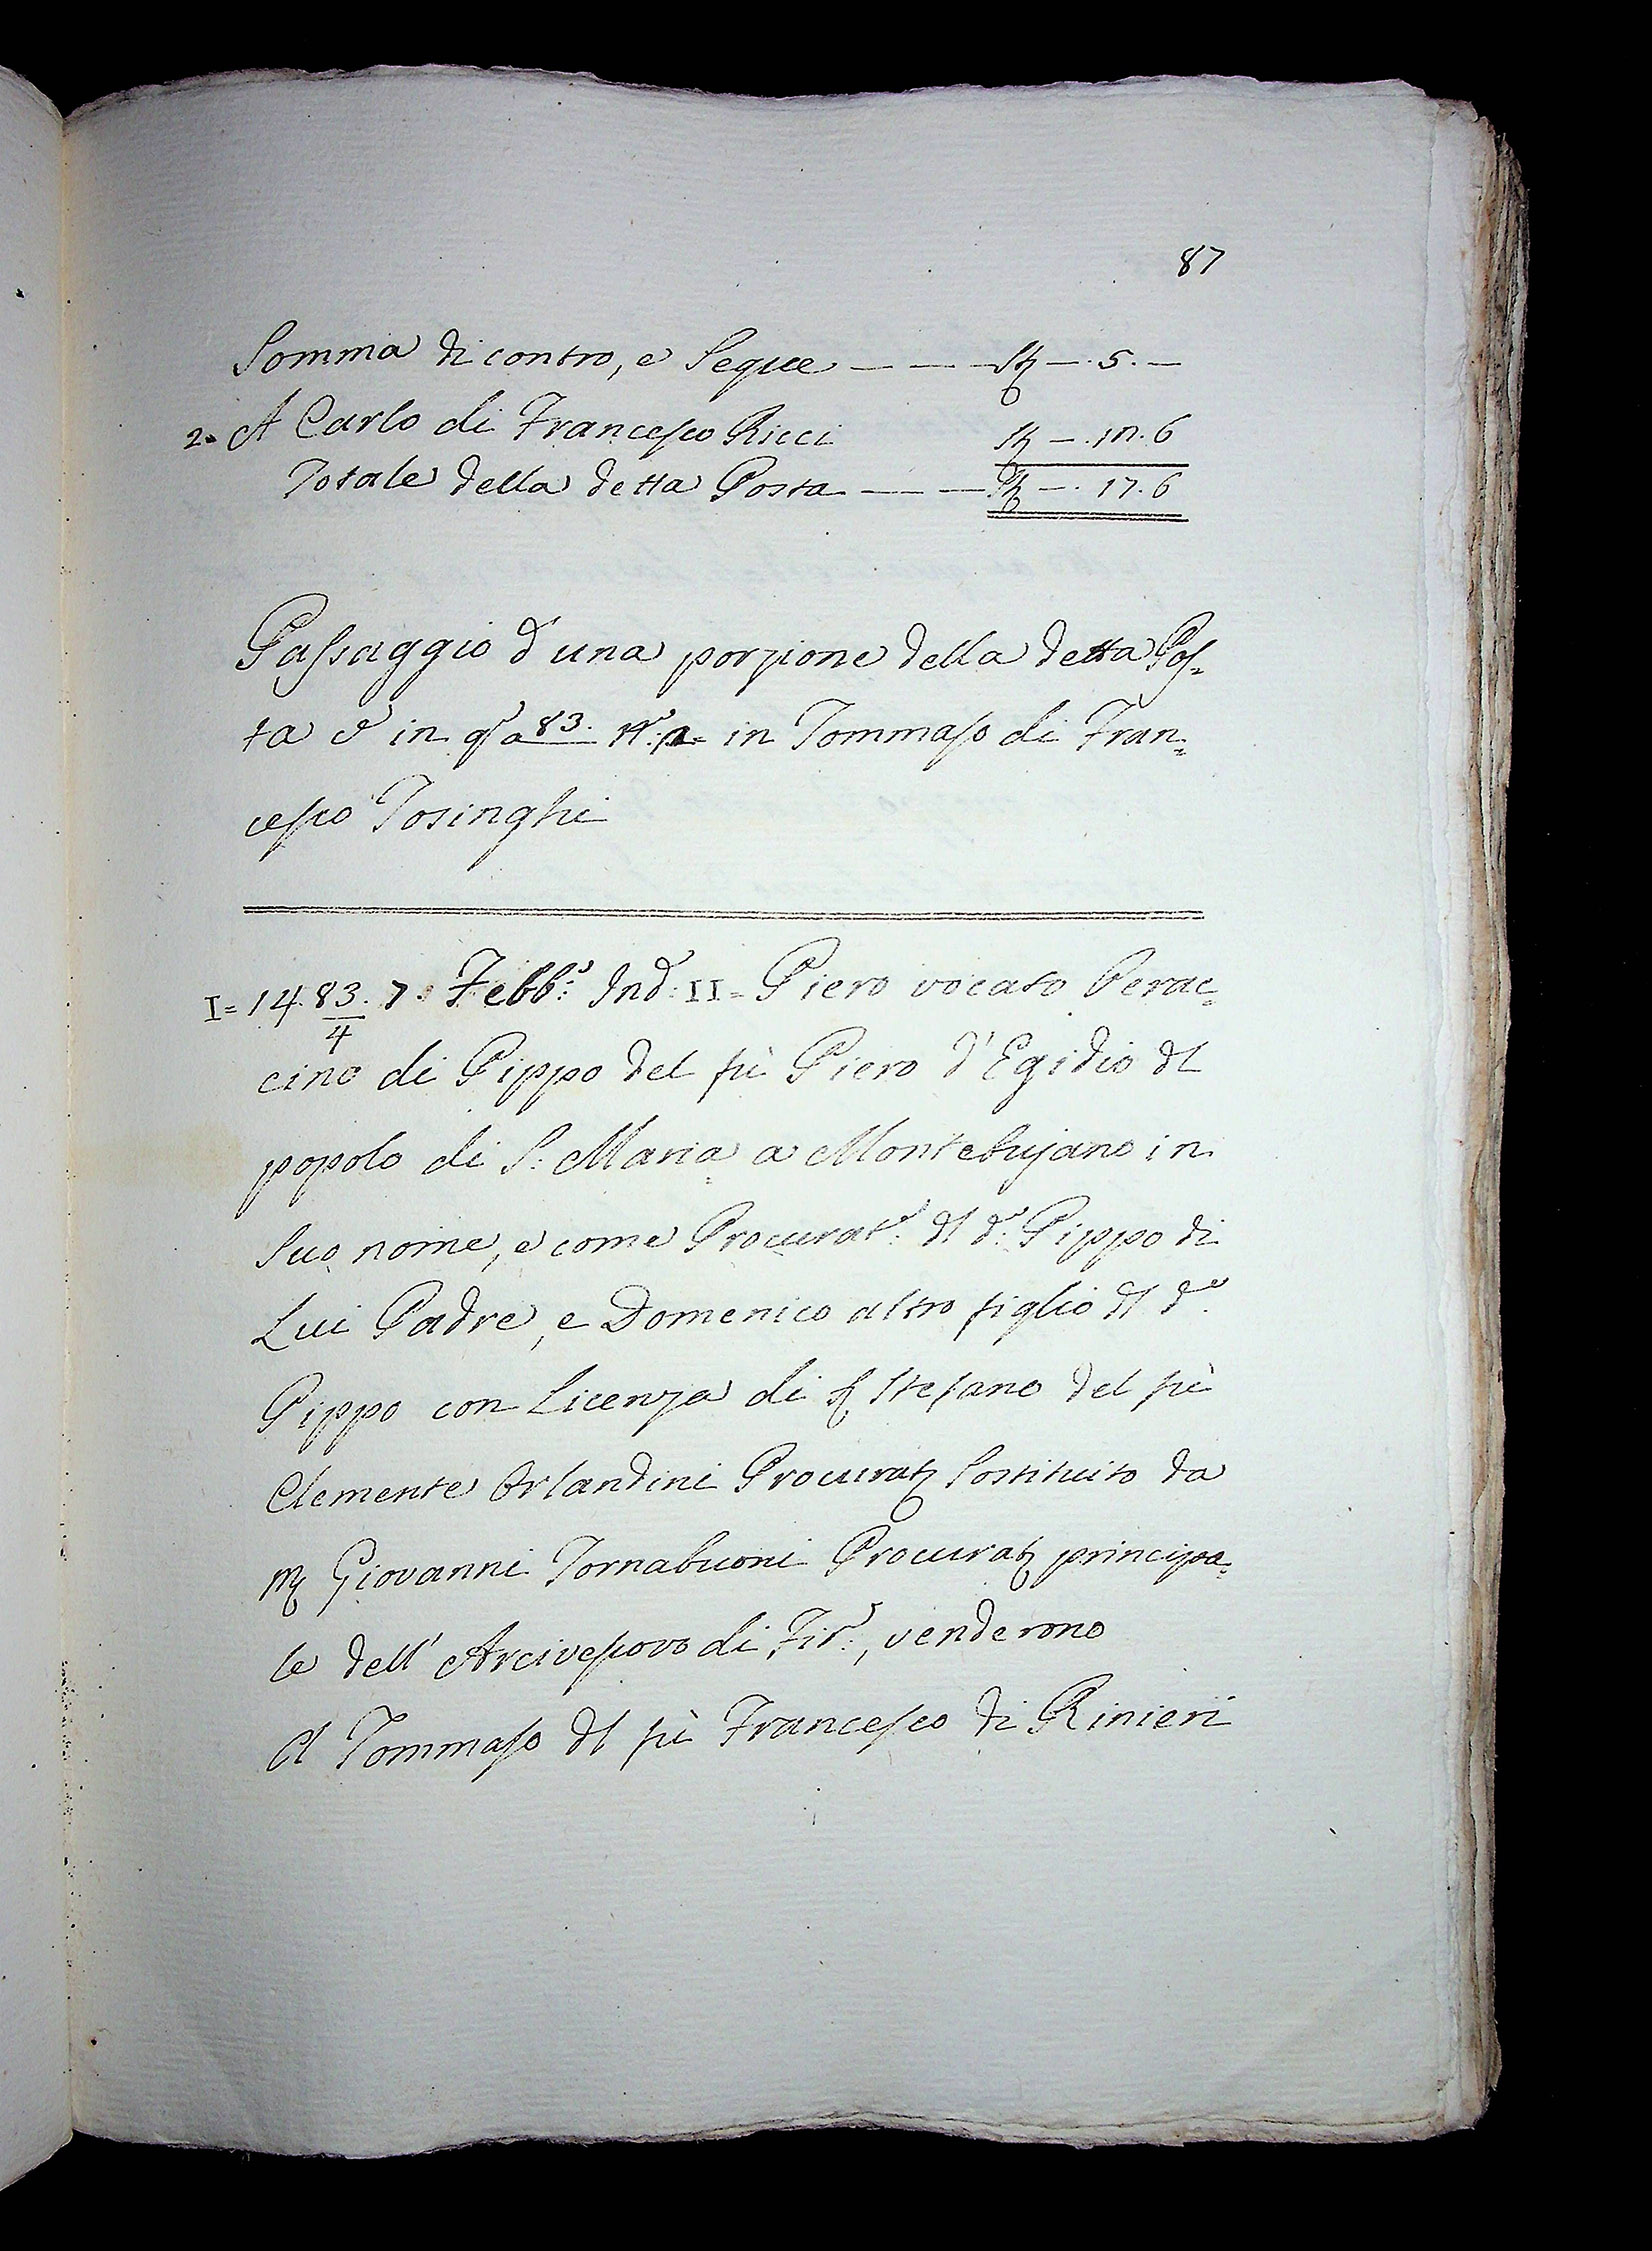 87
Somma di contro, e Segue — — — St — . 5. —
2. A Carlo di Francesco Ricci St — . 12. 6
Totale della detta Posta — — — St — . 17. 6
Passaggio d'una porzione della detta Pos=
ta in 83. in Tommaso di Fran=
cesco Tosinghi
I = 1483/4. 7. Febb.º Ind: II = Piero vocato Perac=
cino di Pippo del fù Piero d'Egidio dl
popolo di S: Maria a Montebujano in
Suo nome, e come Procurat.e dl d.º Pippo di
Lui Padre, e Domenico altro figlio dl d.º
Pippo con Licenza di S. Stefano del fù
Clemente Orlandini Procurat. Sostituito da
M. Giovanni Tornabuoni Procurat. principa=
le dell' Arcivescovo di Fir.e, venderono
A Tommaso dl fù Francesco di Rinieri